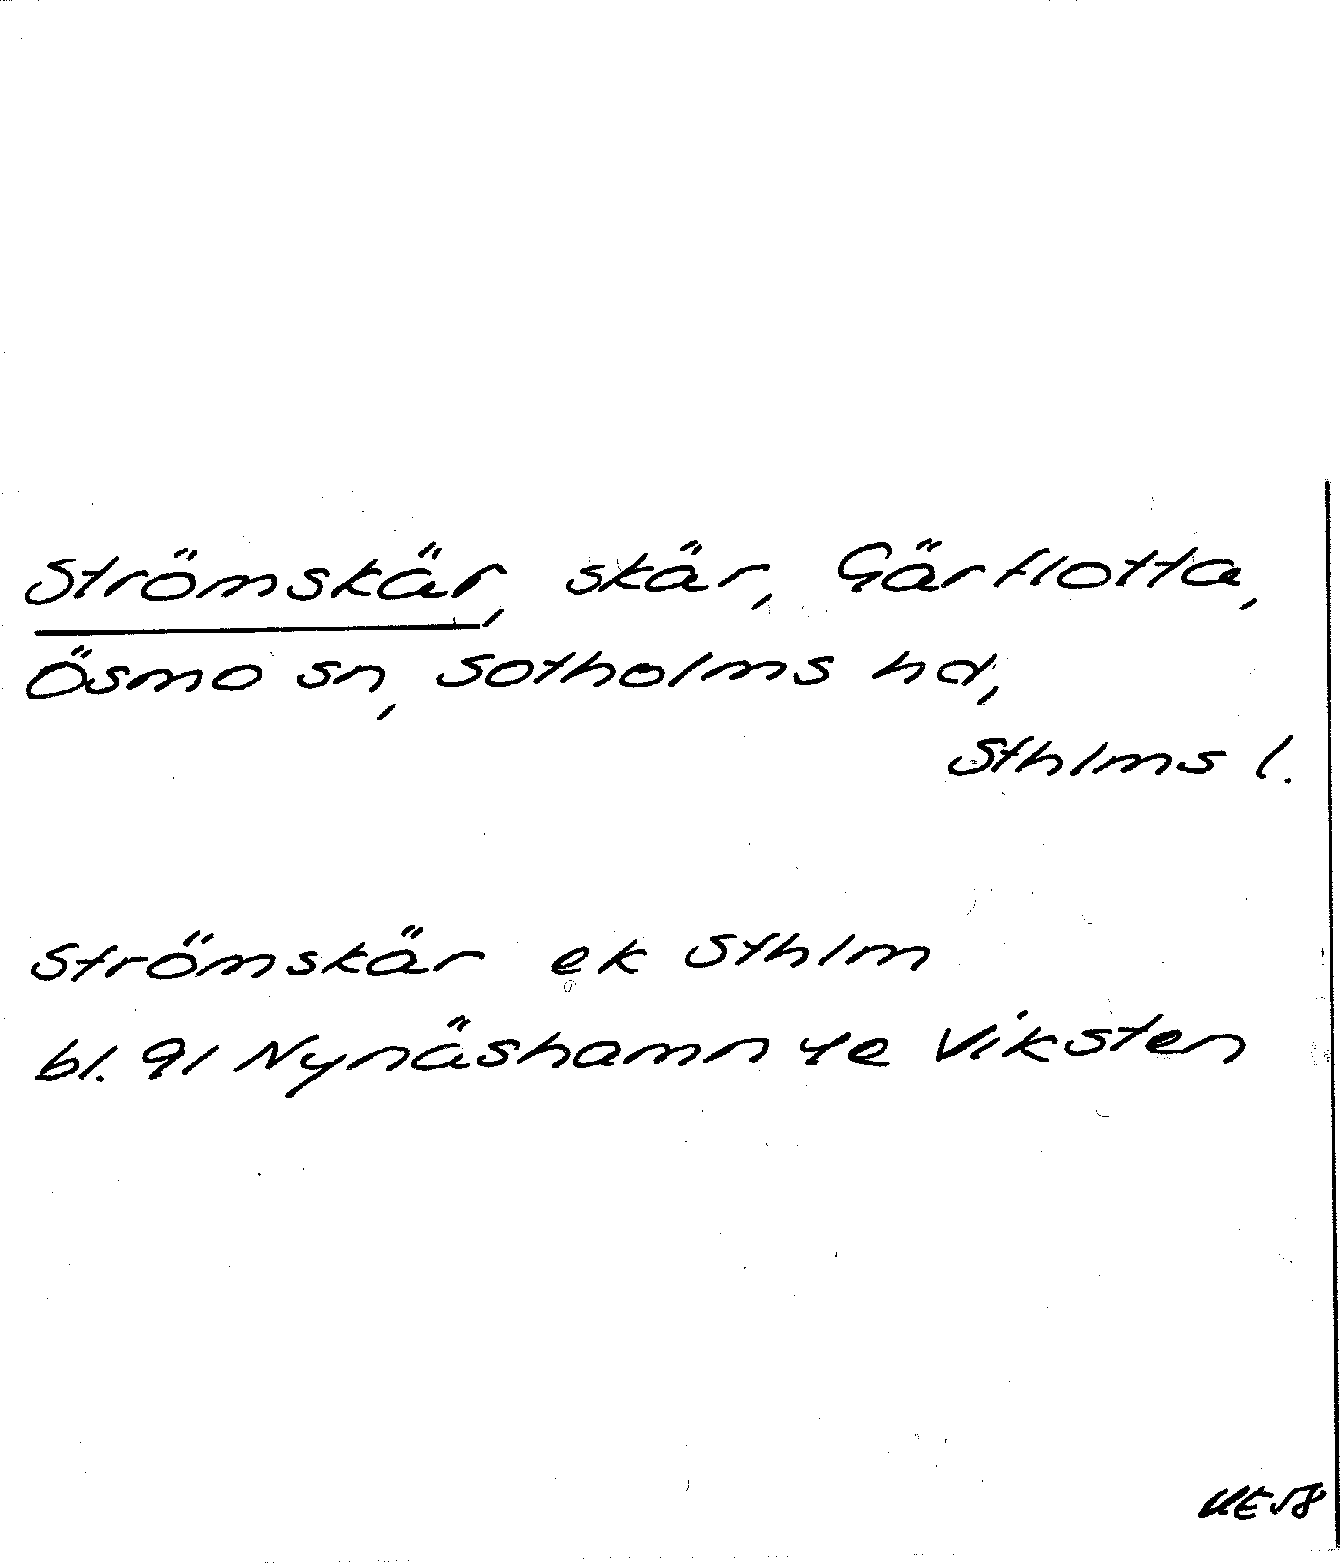 Strömskär, skär, Gärflotta,
Ösmo sn, Sotholms hd,
Sthlms l.
Strömskär ek Sthlm
bl. 91 Nynäshamn 4e Viksten
UE58